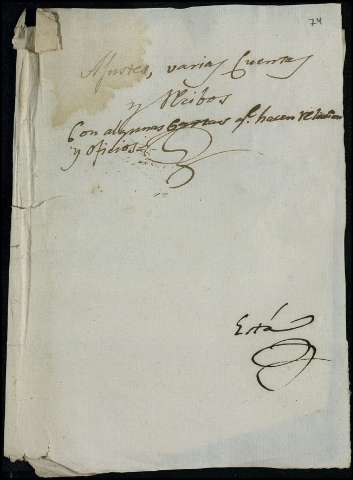 74
Ajustes, varias Cuentas
y Recibos
Con algunas Cartas q.e hacen relacion
y oficios
Está